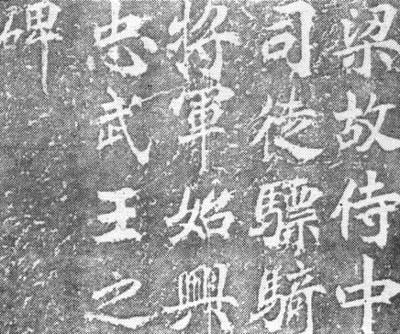 梁故侍中
司徒驃騎
將軍始興
忠武王之
碑